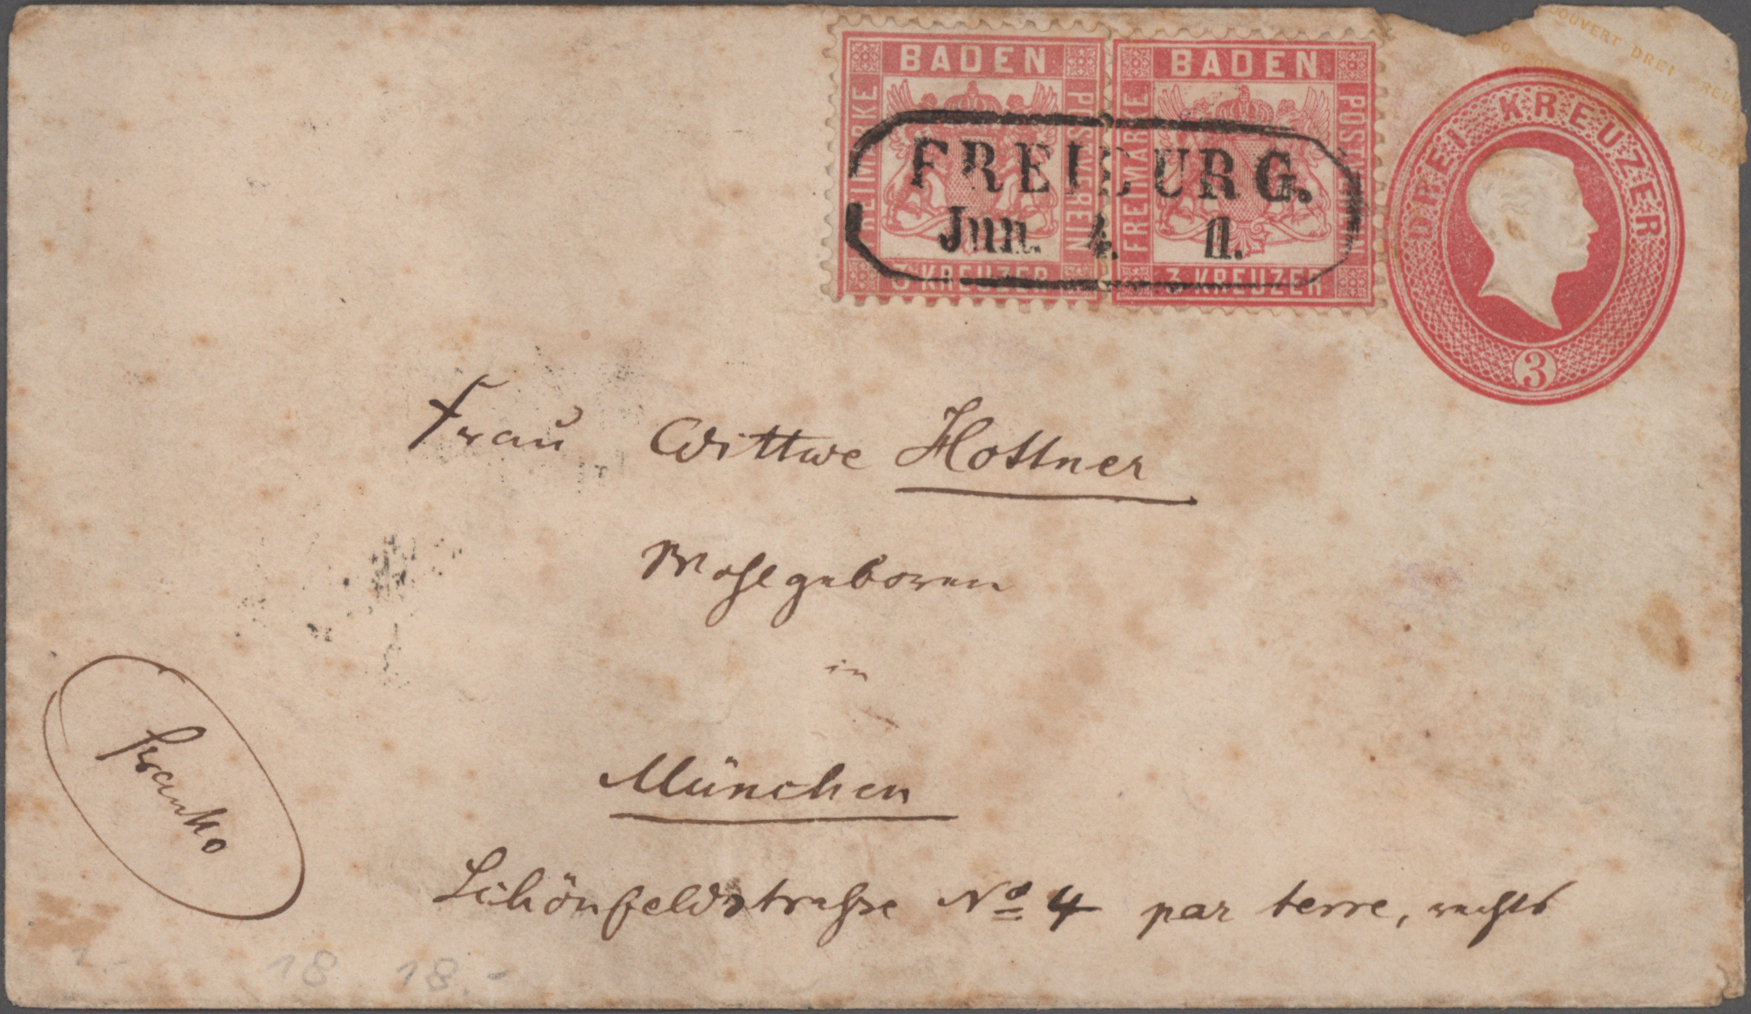 BADEN
FREIMARKE
POSTVEREIN
3 KREUZER
BADEN
FREIMARKE
POSTVEREIN
3 KREUZER
FREIBURG.
Jun. 4. II.
DREI KREUZER
3
COUVERT DREI KREUZER
Frau Wittwe Hottner
Wohlgeboren
in
München
Schönfeldstraße No 4 par terre, rechts
franko
18 18.-